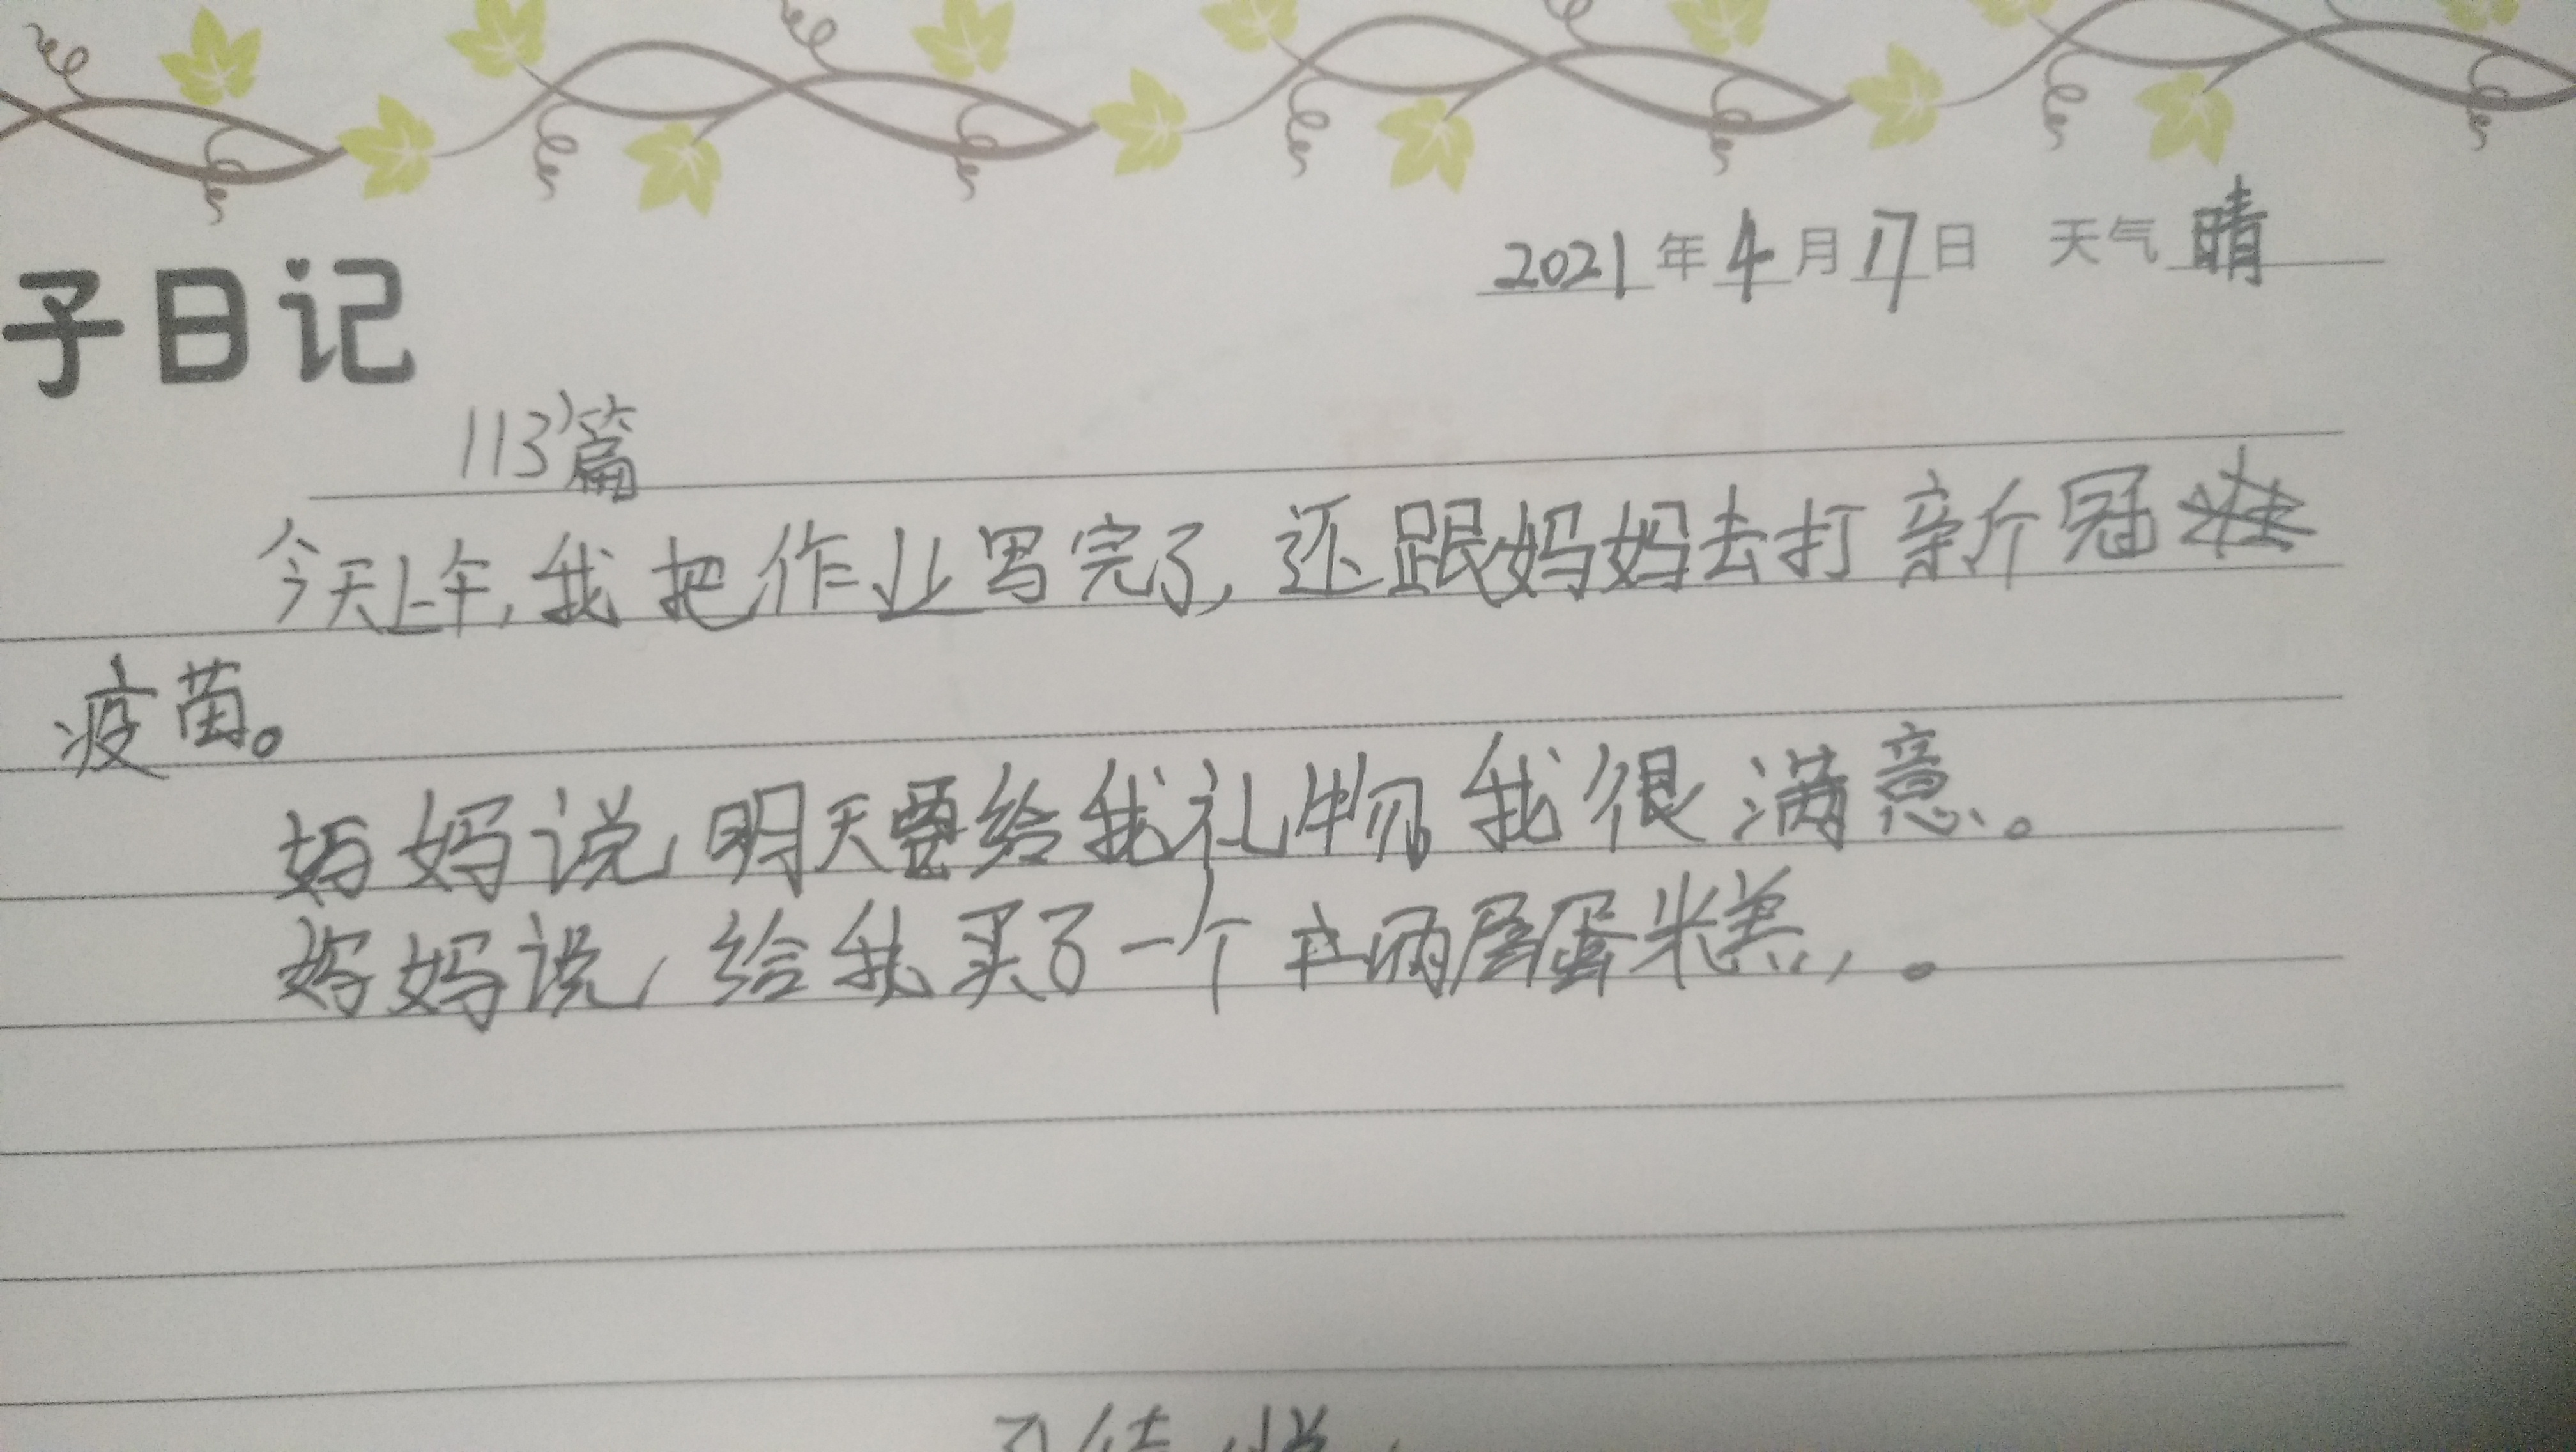 2021年4月17日 天气 晴
子日记
113篇
今天上午,我把作业写完了,还跟妈妈去打新冠
疫苗。
妈妈说,明天要给我礼物,我很满意。
妈妈说,给我买了一个立两层蛋糕,。